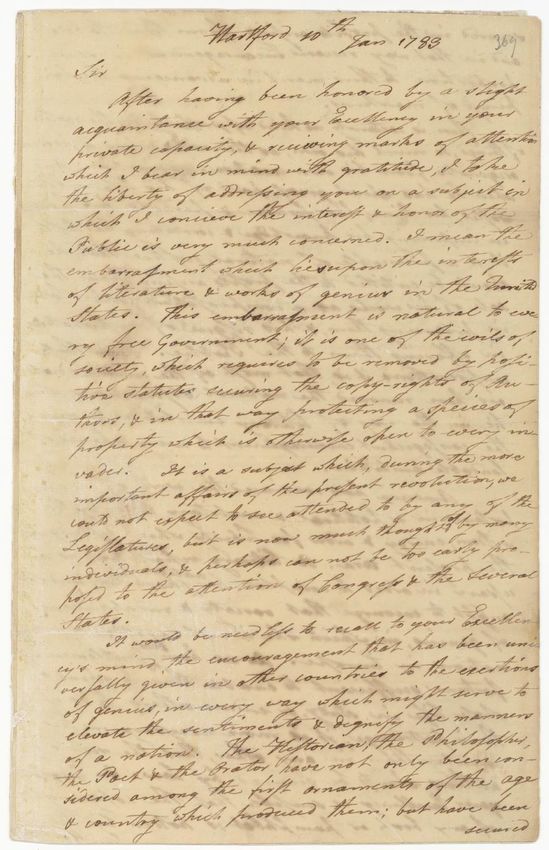 Hartford 10th Jan 1783
369
Sir
After having been honored by a slight
acquaintance with your Excellency in your
private capacity, & receiving marks of attention
which I bear in mind with gratitude, I take
the liberty of addressing you on a subject in
which I concieve the interest & honor of the
Public is very much concerned. I mean the
embarrassment which lies upon the interests
of literature & works of genius in the United
States. This embarrassment is natural to eve
ry free Government; it is one of the evils of
society, which requires to be removed by posi-
tive statutes securing the copy-rights of Au-
thors, & in that way protecting a species of
property which is otherwise open to every in
vader. It is a subject which, during the more
important affairs of the present revolution, we
could not expect to see attended to by any of the
Legislatures, but is now much thought of by many
individuals, & perhaps can not be too early pro-
posed to the attention of Congress & the Several
States.
It would be needless to recall to your Excellen-
cy's mind the encouragement that has been uni
versally given in other countries to the exertions
of genius, in every way which might serve to
elevate the sentiments & dignify the manners
of a nation. The Historian, the Philosopher,
the Poet & the Orator have not only been con-
sidered among the first ornaments of the age
& country which produced them; but have been
secured